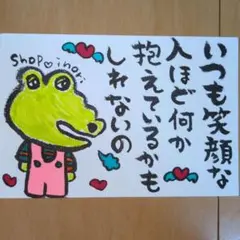 いつも笑顔な
人ほど何か
抱えているかも
しれないの
shop♡inori.